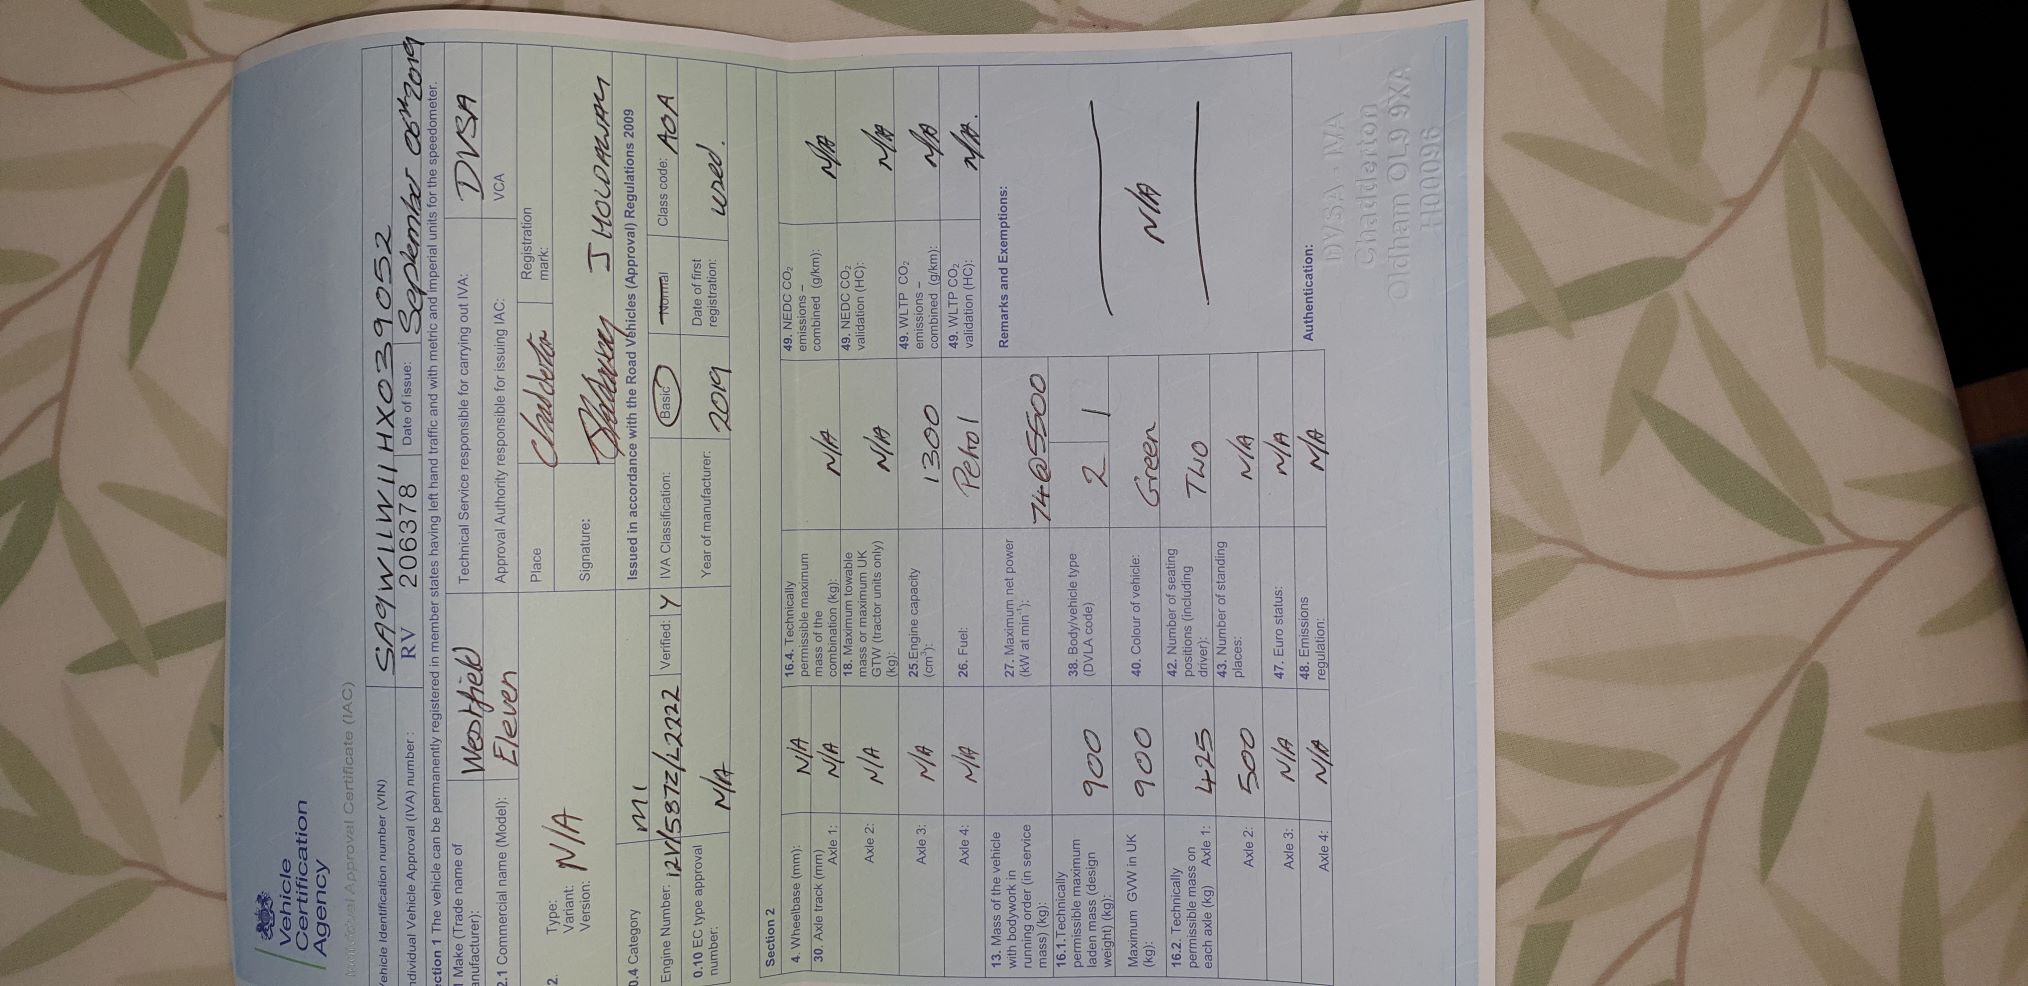 Vehicle
Certification
Agency
Individual Approval Certificate (IAC)
Vehicle Identification number (VIN) SA9W1LW11HX039052
Individual Vehicle Approval (IVA) number: RV 206378 Date of issue: September 06th 2019
Section 1 The vehicle can be permanently registered in member states having left hand traffic and with metric and imperial units for the speedometer.
Make (Trade name of manufacturer): Westfield
Technical Service responsible for carrying out IVA: DVSA
2.1 Commercial name (Model): Eleven
Approval Authority responsible for issuing IAC: VCA
2. Type:
Variant: N/A
Version:
Place Chadderton
Registration mark:
Signature: J HOLDAWAY
0.4 Category M1
Issued in accordance with the Road Vehicles (Approval) Regulations 2009
Engine Number: 12V/587Z/L2222 Verified: Y
IVA Classification: Basic Normal Class code: AOA
0.10 EC type approval number: N/A
Year of manufacturer: 2019
Date of first registration: used.
Section 2
4. Wheelbase (mm): N/A
30. Axle track (mm) Axle 1: N/A
Axle 2: N/A
Axle 3: N/A
Axle 4: N/A
13. Mass of the vehicle with bodywork in running order (in service mass) (kg):
16.1. Technically permissible maximum laden mass (design weight) (kg): 900
Maximum GVW in UK (kg): 900
16.2. Technically permissible mass on each axle (kg) Axle 1: 425
Axle 2: 500
Axle 3: N/A
Axle 4: N/A
16.4. Technically permissible maximum mass of the combination (kg): N/A
18. Maximum towable mass or maximum UK GTW (tractor units only) (kg): N/A
25. Engine capacity (cm³): 1300
26. Fuel: Petrol
27. Maximum net power (kW at min⁻¹): 74@5500
38. Body/vehicle type (DVLA code) 2 1
40. Colour of vehicle: Green
42. Number of seating positions (including driver): Two
43. Number of standing places: N/A
47. Euro status: N/A
48. Emissions regulation: N/A
49. NEDC CO₂ emissions – combined (g/km): N/A
49. NEDC CO₂ validation (HC): N/A
49. WLTP CO₂ emissions – combined (g/km): N/A
49. WLTP CO₂ validation (HC): N/A.
Remarks and Exemptions:
N/A
Authentication:
DVSA - IVA
Chadderton
Oldham OL9 9XA
H00096